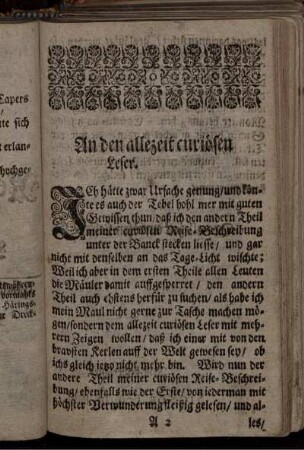 Capers
te sich
t erlan-
hochge-
vormahls
Härings-
r Direk-
An den allezeit curiösen
Leser.
ICh hätte zwar Ursache genung/ und kön-
te es auch der Tebel hohl mer mit guten
Gewissen thun/ daß ich den andern Theil
meiner curiösen Reise-Beschreibung
unter der Banck stecken liesse/ und gar
nicht mit denselben an das Tage-Licht wischte;
Weil ich aber in dem ersten Theile allen Leuten
die Mäuler damit auffgesperret/ den andern
Theil auch ehstens herfür zu suchen/ als habe ich
mein Maul nicht gerne zur Tasche machen mö-
gen/ sondern dem allezeit curiösen Leser mit meh-
rern Zeigen wollen/ daß ich einer mit von den
bravsten Kerlen auff der Welt gewesen sey/ ob
ichs gleich jetzo nicht mehr bin. Wird nun der
andere Theil meiner curiösen Reise-Beschrei-
bung/ ebenfalls wie der Erste/ von iederman mit
höchster Verwunderung fleißig gelesen/ und al-
A 2 les/